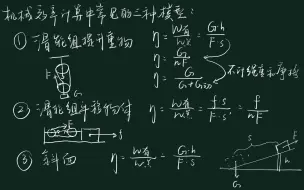 机械效率计算中常见的三种模型:
① 滑轮组提升重物 η = W有/W总 = G·h/F·s
η = G/nF
η = G/G+G动
不计绳重和摩擦
② 滑轮组平移物体 η = W有/W总 = f·s/F·s = f/nF
③ 斜面 η = W有/W总 = G·h/F·s